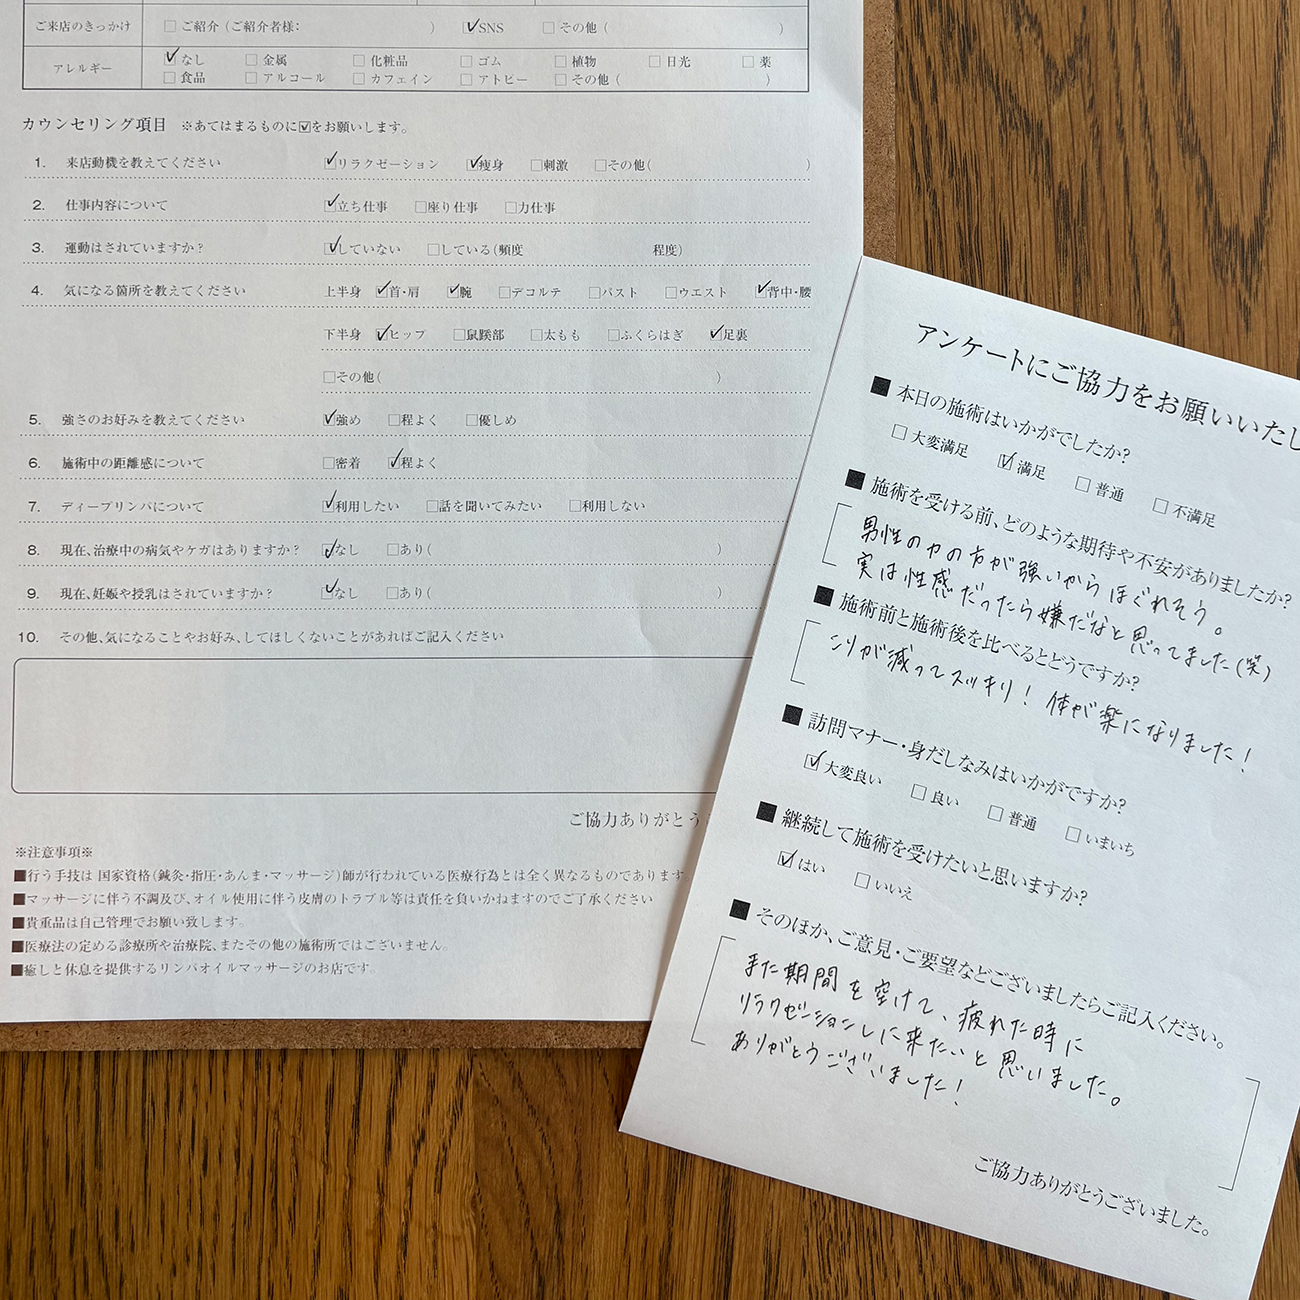 ご来店のきっかけ □ご紹介(ご紹介者様: ) ☑SNS □その他( )
アレルギー ☑なし □金属 □化粧品 □ゴム □植物 □日光 □薬
□食品 □アルコール □カフェイン □アトピー □その他( )
カウンセリング項目 ※あてはまるものに☑をお願いします。
1. 来店動機を教えてください ☑リラクゼーション ☑痩身 □刺激 □その他( )
2. 仕事内容について ☑立ち仕事 □座り仕事 □力仕事
3. 運動はされていますか? ☑していない □している(頻度 程度)
4. 気になる箇所を教えてください 上半身 ☑首・肩 ☑腕 □デコルテ □バスト □ウエスト ☑背中・腰
下半身 ☑ヒップ □鼠蹊部 □太もも □ふくらはぎ ☑足裏
□その他( )
5. 強さのお好みを教えてください ☑強め □程よく □優しめ
6. 施術中の距離感について □密着 ☑程よく
7. ディープリンパについて ☑利用したい □話を聞いてみたい □利用しない
8. 現在、治療中の病気やケガはありますか? ☑なし □あり( )
9. 現在、妊娠や授乳はされていますか? ☑なし □あり( )
10. その他、気になることやお好み、してほしくないことがあればご記入ください
ご協力ありがとう
※注意事項※
■行う手技は 国家資格(鍼灸・指圧・あんま・マッサージ)師が行われている医療行為とは全く異なるものであります。
■マッサージに伴う不調及び、オイル使用に伴う皮膚のトラブル等は責任を負いかねますのでご了承ください
■貴重品は自己管理でお願い致します。
■医療法の定める診療所や治療院、またその他の施術所ではございません。
■癒しと休息を提供するリンパオイルマッサージのお店です。
アンケートにご協力をお願いいたし
■ 本日の施術はいかがでしたか?
□大変満足 ☑満足 □普通 □不満足
■ 施術を受ける前、どのような期待や不安がありましたか?
男性の力の方が強いからほぐれそう。
実は性感だったら嫌だなと思ってました(笑)
■ 施術前と施術後を比べるとどうですか?
こりが減ってスッキリ! 体が楽になりました!
■ 訪問マナー・身だしなみはいかがですか?
☑大変良い □良い □普通 □いまいち
■ 継続して施術を受けたいと思いますか?
☑はい □いいえ
■ そのほか、ご意見・ご要望などございましたらご記入ください。
また期間を空けて、疲れた時に
リラクゼーションしに来たいと思いました。
ありがとうございました!
ご協力ありがとうございました。